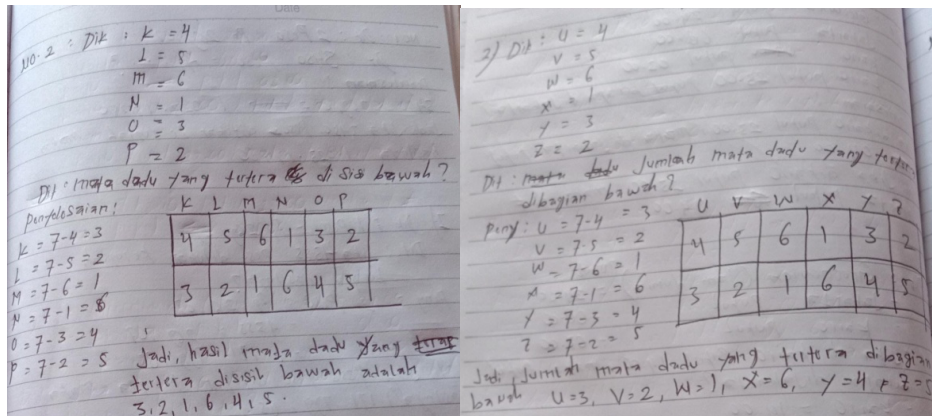 No. 2 : Dik : K = 4
L = 5
M = 6
N = 1
O = 3
P = 2
Dit : mata dadu yang tertera di sisi bawah ?
Penyelesaian :
K = 7-4 = 3
L = 7-5 = 2
M = 7-6 = 1
N = 7-1 = 6
O = 7-3 = 4
P = 7-2 = 5
K L M N O P
4 5 6 1 3 2
3 2 1 6 4 5
Jadi, hasil mata dadu yang
tertera disisi bawah adalah
3, 2, 1, 6, 4, 5.
2) Dit : U = 4
V = 5
W = 6
X = 1
Y = 3
Z = 2
Dit : Jumlah mata dadu yang
dibagian bawah ?
Peny : U = 7-4 = 3
V = 7-5 = 2
W = 7-6 = 1
X = 7-1 = 6
Y = 7-3 = 4
Z = 7-2 = 5
U V W X Y Z
4 5 6 1 3 2
3 2 1 6 4 5
Jadi Jumlah mata dadu yang tertera dibagian
bawah U=3, V=2, W=1, X=6, Y=4, Z=5